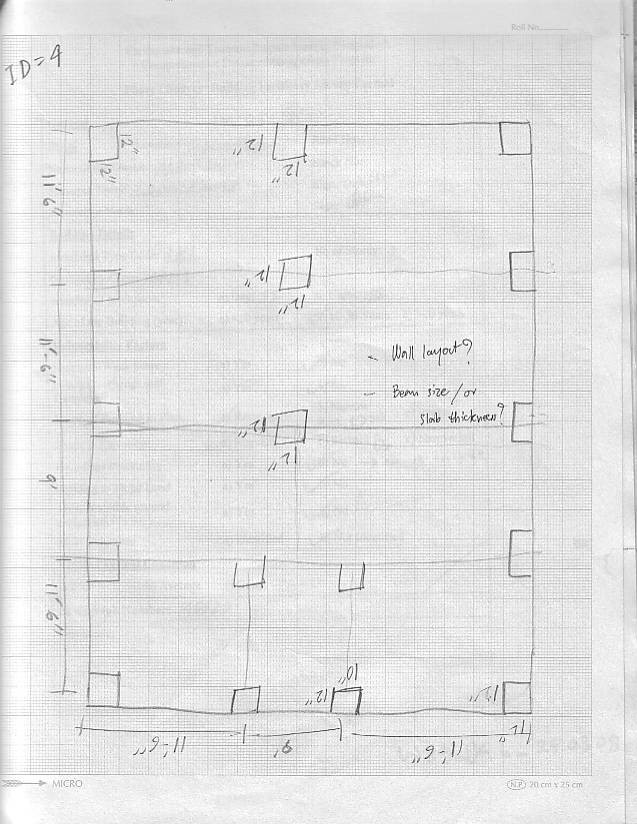 Roll No.
ID=4
12"
12"
12"
12"
11'6"
12"
12"
11'-6"
Wall layout?
Beam size/or
Slab thickness?
12"
12"
9'
11'6"
10"
12"
12"
12"
11'-6"
9'
11'-6"
MICRO
N.P. 20 cm x 25 cm